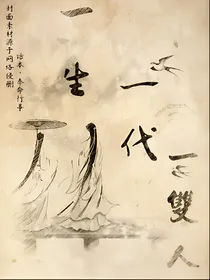 一生
一代
一雙人
话本·奉命行事
封面素材源于网络侵删